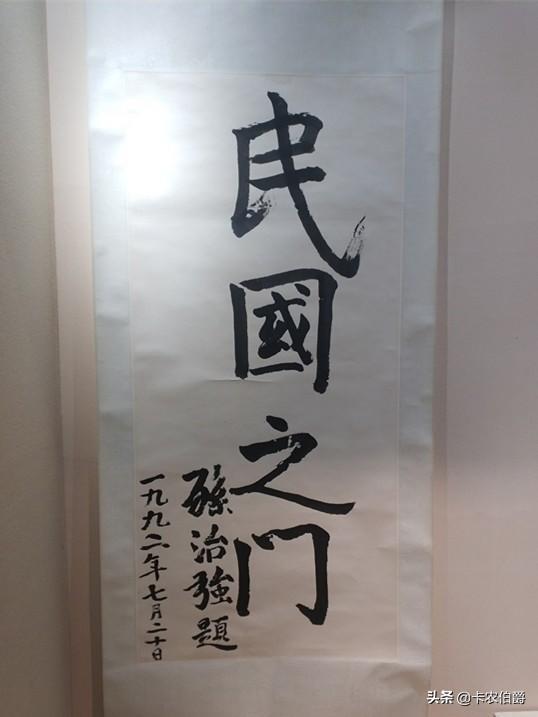 民國之门
孫治強題
一九九二年七月二十日
头条 @卡农伯爵